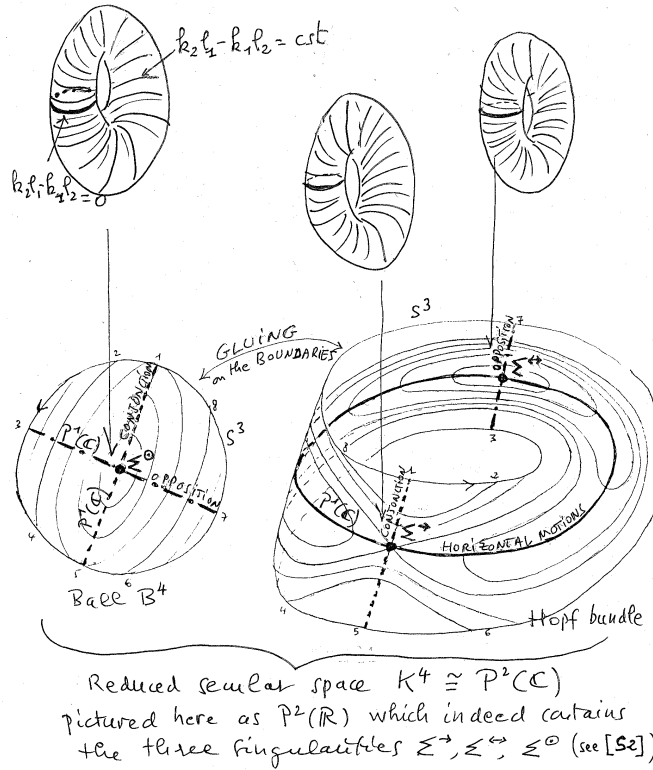 k₂l₁-k₁l₂ = cst
k₂l₁-k₁l₂ = 0
S³
GLUING
on the BOUNDARIES
OPPOSITION
7
Σ↔
3
2
1
CONJONCTION
8
S³
3
P¹(ℂ)
Σ⊙
OPPOSITION
P¹(ℂ)
7
4
5
6
Ball B⁴
8
1
2
P¹(ℂ)
CONJONCTION
Σ→
HORIZONTAL MOTIONS
4
5
6
Hopf bundle
Reduced secular space K⁴ ≅ P²(ℂ)
pictured here as P²(ℝ) which indeed contains
the three singularities Σ→, Σ↔, Σ⊙ (see [S2])